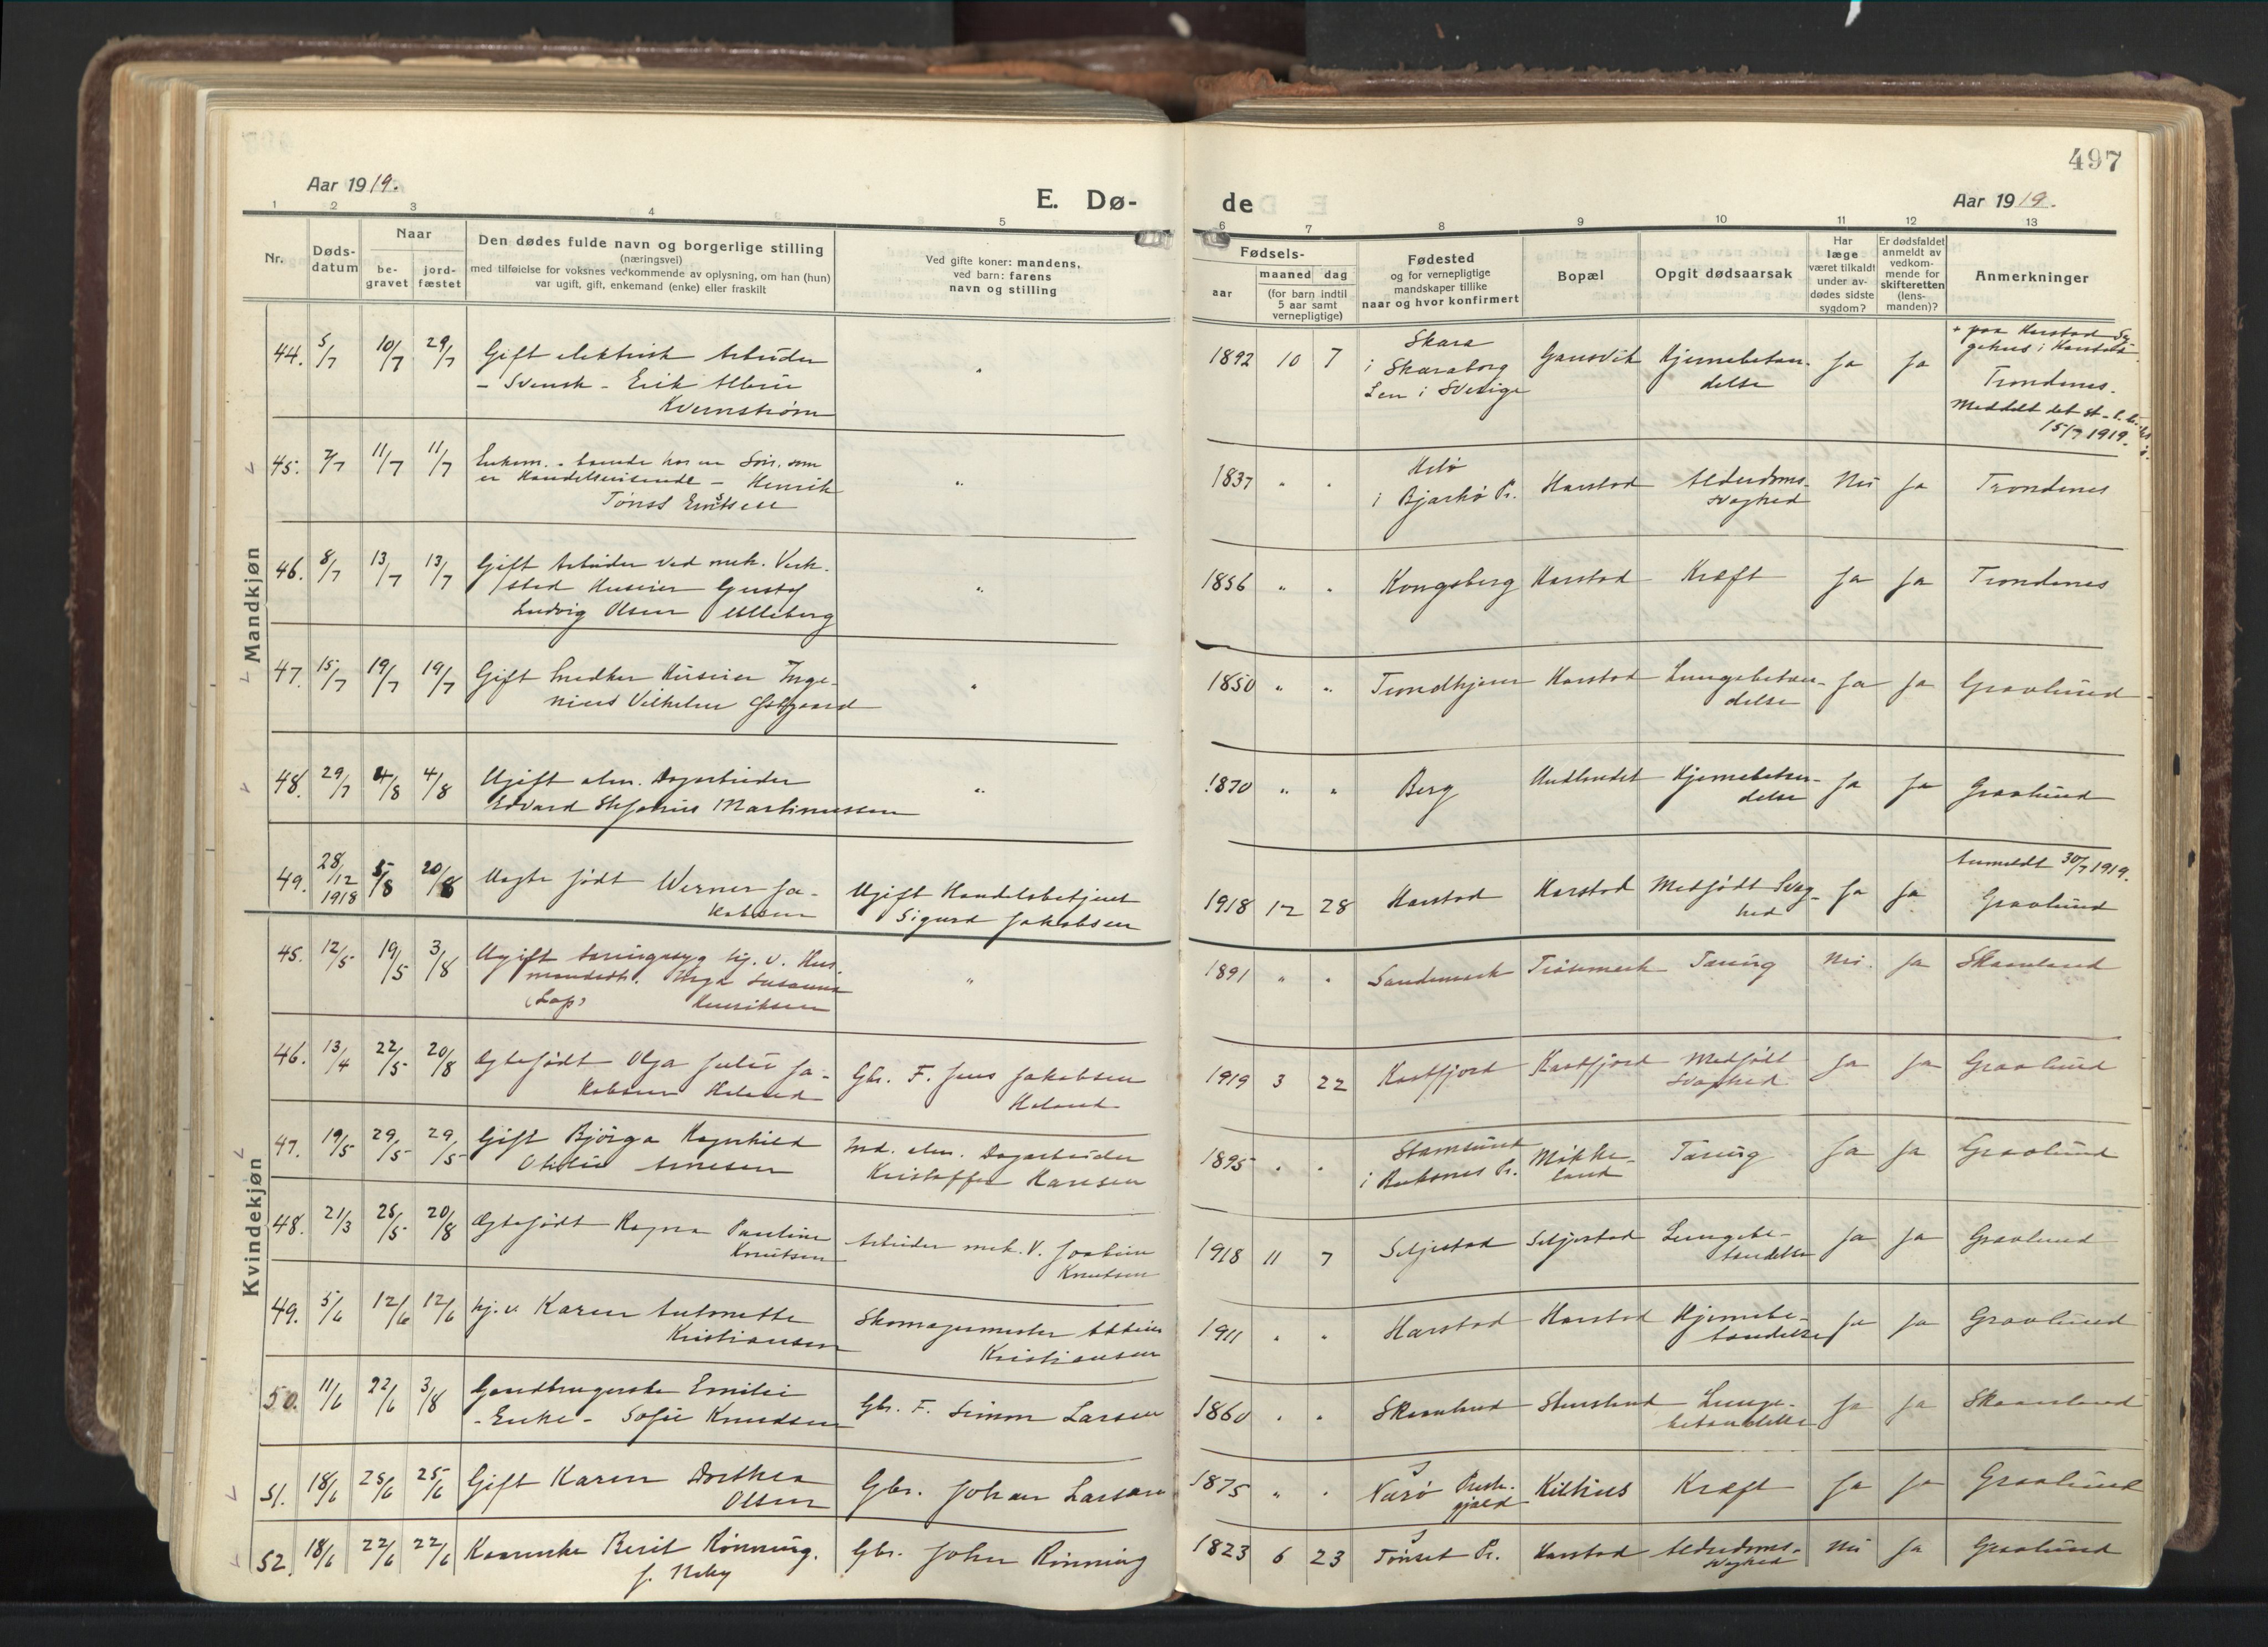 497
Aar 1919.
E. Dø-
de
Aar 1919.
1 2 3 4 5 6 7 8 9 10 11 12 13
Nr.
Døds-
datum
Naar
be-
gravet
jord-
fæstet
Den dødes fulde navn og borgerlige stilling
(næringsvei)
med tilføielse for voksnes vedkommende av oplysning, om han (hun)
var ugift, gift, enkemand (enke) eller fraskilt
Ved gifte koner: mandens,
ved barn: farens
navn og stilling
Fødsels-
aar
maaned dag
(for barn indtil
5 aar samt
vernepligtige)
Fødested
og for vernepligtige
mandskaper tillike
naar og hvor konfirmert
Bopæl
Opgit dødsaarsak
Har
læge
været tilkaldt
under av-
dødes sidste
sygdom?
Er dødsfaldet
anmeldt av
vedkom-
mende for
skifteretten
(lens-
manden)?
Anmerkninger
Mandkjøn
44. 5/7 10/7 29/7 Gift elektrisk Arbeider
- Svensk - Erik Albin
Kvernstrøm
1892 10 7 Skara
i Skaraborg
Len i Sverige
Gausvik Hjernebetæn-
delse
Ja Ja + paa Harstad Sy-
gehus i Harstad
Trondenes.
Meddelt det st.
15/7 1919.
45. 7/7 11/7 11/7 Enkem. - boende hos en Søn, som
er Handelsreisende - Henrik
Tønss Erntsen
" 1837 " " i Bjarkø Pr. Harstad Alderdoms-
svaghed
Nei Ja Trondenes
46. 8/7 13/7 13/7 Gift Arbeider ved mek. Verk-
sted Huseier Gustaf
Ludvig Olsen Ulleberg
" 1856 " " Kongsberg Harstad Kræft Ja Ja Trondenes
47. 15/7 19/7 19/7 Gift Snedker Huseier Inge-
Vilhelm
" 1850 " " Trondhjem Harstad Lungebetæn-
delse
Ja Ja Gravlund
48. 29/7 4/8 4/8 Ugift alm. Dagarbeider
Edvard Martinussen
" 1870 " " Berg Hjernebetæn-
delse
Ja Ja Gravlund
49. 28/12 1918 5/8 20/8 Uegte født Werner Ja-
kobsen
Ugift Handelsbetjent
Sigurd Jakobsen
1918 12 28 Harstad Harstad Medfødt Svag-
hed
Ja Ja Anmeldt 30/7 1919.
Gravlund
Kvindekjøn
45. 12/5 19/5 3/8 Ugift tæringssyg hj. v. Hus-
mandsdt. Susanna
(Lap) Henriksen
" 1891 " " Sandemark Trøsemark Tæring Nei. Ja Skaanland
46. 13/4 22/5 20/8 Ægtefødt Olga Julie Ja-
kobsen Heland
Gbr. F. Jens Jakobsen
Heland
1919 3 22 Kastfjord Kastfjord Medfødt
Svaghed
Ja Ja Gravlund
47. 19/5 29/5 29/5 Gift Bjørga Ragnhild
Otilie Arnesen
Md. alm. Dagarbeider
Kristoffer Hansen
1895 " " Stamsund
i Buksnes Pr.
Møkke-
land
Tæring Ja Ja Gravlund
48. 21/3 25/5 20/8 Ægtefødt Ragna Pauline
Knutsen
Arbeider mek. V. Joakim
Knutsen
1918 11 7 Seljestad Seljestad Lungebe-
tændelse
Ja Ja Gravlund
49. 5/6 12/6 12/6 hj. v. Karen Antonette
Kristiansen
Skomagermester
Kristiansen
1911 " " Harstad Harstad Hjernebe-
tændelse
Ja Ja Gravlund
50. 11/6 22/6 3/8 Gaardbrugerske Emilie
- Enke - Sofie Knudsen
Gbr. F. Simon Larsen
1860 " " Skaanland Lunge-
betændelse
Ja Ja Skaanland
51. 18/6 25/6 25/6 Gift Karen Dorthea
Olsen
Gbr. Johan Larsen
1875 " " Nærø Prest-
gjeld
Kilhus Kræft Ja Ja Gravlund
52. 18/6 22/6 22/6 Kaarenke Berit Rønning.
f. Neby
Gbr. John Rønning
1823 6 23 Tønset Pr. Harstad Alderdoms-
svaghed
Nei Ja Gravlund